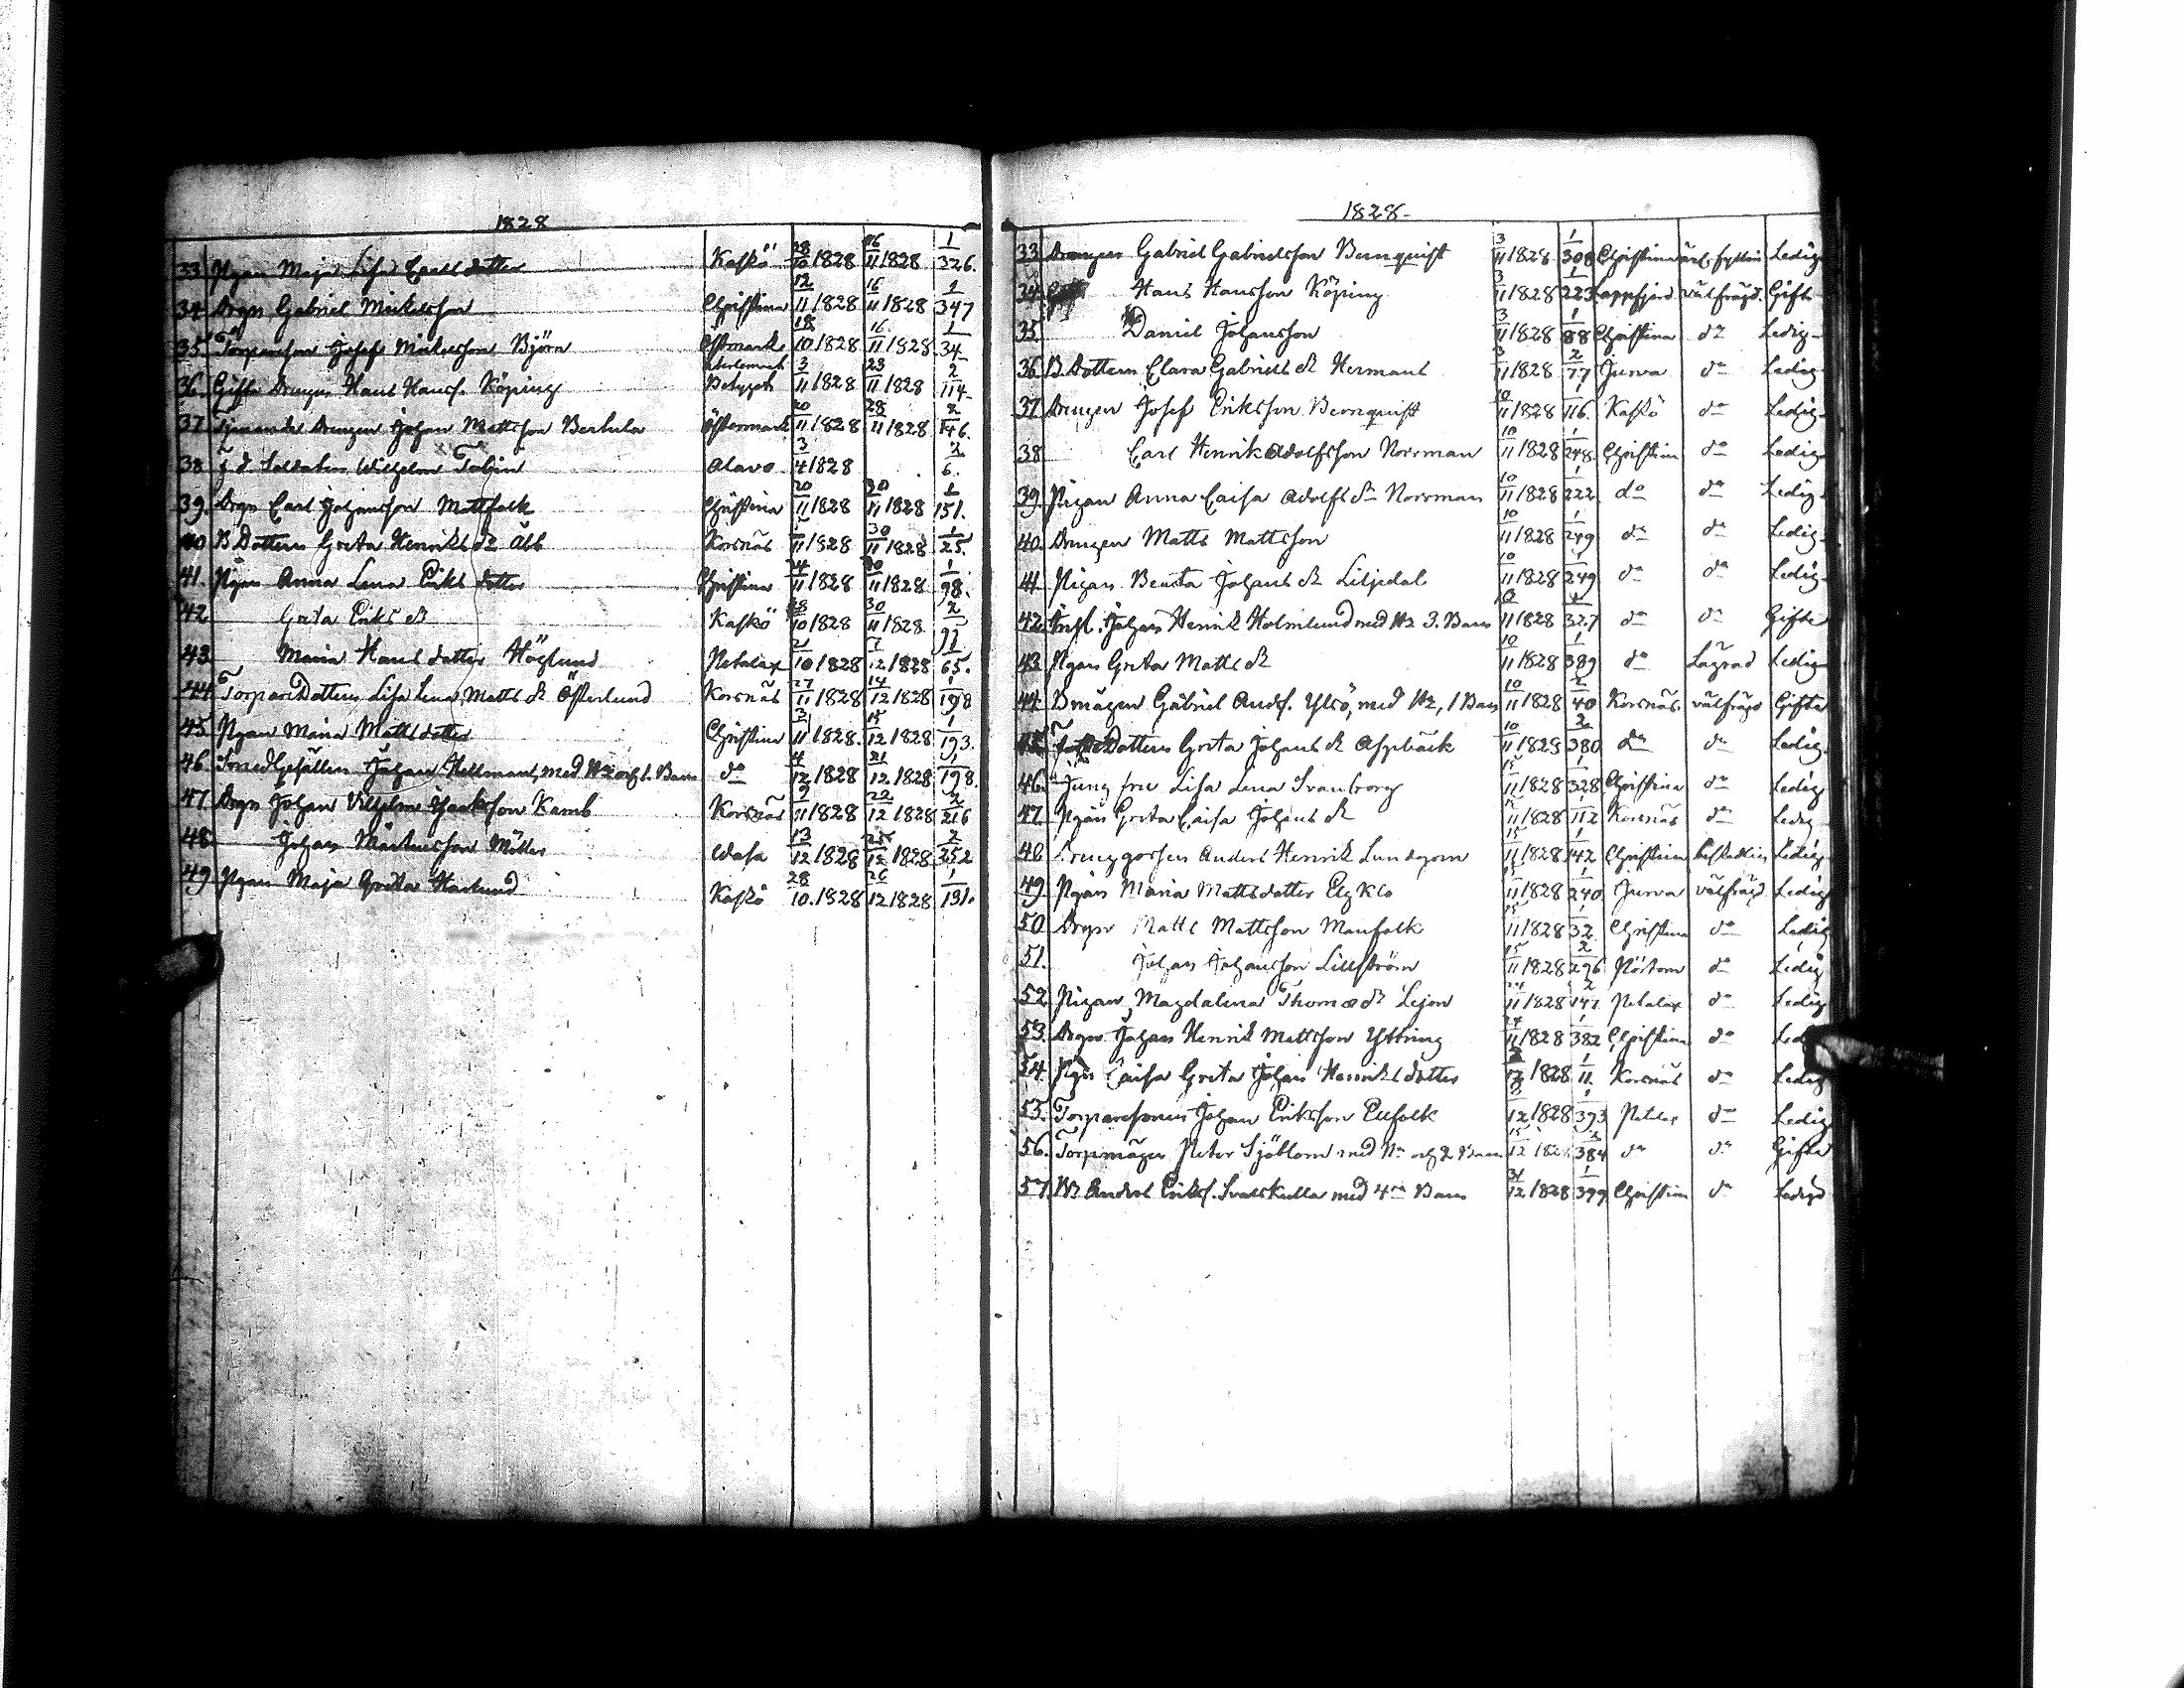 1828
33. Pigan Maja Lisa Carlsdotter Kaskö 28/10 1828 16/11 1828 1/326.
34. Drgn Gabriel Mickelsson Christina 12/11 1828 16/11 1828 2/347
35. Torparson Josef Mickelsson Björn Östermark 18/10 1828 16/11 1828 1/34
36. Gifte Drengen Hans Hansf. Köping Betyget 3/11 1828 23/11 1828 2/114
37. Tjenande Drengen Johan Mattsson Bertula Östermark 20/11 1828 28/11 1828 2/146.
38. f. d. Soldaten Wilhelm Alavo 3/4 1828 2/6.
39. Drgn Carl Johansson Mattfolk Christina 20/11 1828 30/11 1828 1/151.
40 B Dottern Greta Henriksdr Åbb Korsnäs /11 1828 30/11 1828 1/25.
41. Pigan Anna Lena Eriksdotter Christina 24/11 1828 30/11 1828 1/98.
42 Greta Eriksdr Kaskö 28/10 1828 30/11 1828 2/91
43 Maria Hansdotter Höglund Petalax 21/10 1828 7/12 1828 65.
44 Torparedottern Lisa Lena Mattsdr Österlund Korsnäs 27/11 1828 14/12 1828 1/198
45. Pigan Maria Mattsdotter Christina 3/11 1828. 15/12 1828 1/193.
46. Smedgesällen Johan Hellman, med Hu och 1. Barn do 4/12 1828 21/12 1828 1/198.
47. Drgn Johan Vilhelm Isaksson Kamb Korsnäs 9/11 1828 22/12 1828 2/216
48 Johan Mårtensson Mitts Wasa 13/12 1828 25/12 1828 2/352
49 Pigan Maja Greta Haglund Kaskö 28/10. 1828 26/12 1828 1/131.
1828
33 Drengen Gabriel Gabrielsson Bernquist 3/11 1828 1/308 Christina Ledig
34 Hans Hansson Köping 3/11 1828 1/223 Lappfjerd välfrägd. Gift
35. Daniel Johansson 3/11 1828 1/88 Christina do Ledig
36. B Dottern Clara Gabrielsdr Hermans 3/11 1828 2/77 Jurva do Ledig
37. Drengen Josef Eriksson Bernquist 10/11 1828 116. Kaskö do Ledig
38 Carl Henrik Adolfsson Norrman 10/11 1828 1/248 Christina do Ledig
39. Pigan Anna Caisa Adolfsdr Norrman 10/11 1828 1/222 do do Ledig
40. Drengen Matts Mattsson 10/11 1828 1/249 do do Ledig
41 Pigan Beata Johansdr Liljedal 10/11 1828 1/249 do do Ledig
42. Inhs. Johan Henrik Holmlund med Hu 3. Barn 10/11 1828 1/327 do do Gifte
43. Pigan Greta Mattsdr 10/11 1828 1/389 do Lagrad Ledig
44 Bmågen Gabriel Andsf. Ytrö, med Hu, 1 Barn 10/11 1828 2/40 Korsnäs. välfrägd Gifta
45 Dottern Greta Johansdr Aspbäck 10/11 1828 2/380 do do Ledig
46. Jungfru Lisa Lena Svanborg 15/11 1828 1/328 Christina do Ledig
47. Pigan Greta Caisa Johansdr 15/11 1828 1/112 Korsnäs do Ledig
48 Drenggossen Anders Henrik Lundgren 15/11 1828 1/142 Christina Ledig
49 Pigan Maria Mattsdotter Elgklo 15/11 1828 1/240 Jurva välfrägd Ledig
50 Drgn Matts Mattsson Manfolk 15/11 1828 1/32 Christina do Ledig
51. Johan Johansson Lillström 15/11 1828 2/296 Pörtom do Ledig
52 Pigan Magdalena Thomasdr Lejon 24/11 1828 2/147 Petalax do Ledig
53. Drgn Johan Henrik Mattsson Yttring 27/11 1828 1/382 Christina do Led
54. Pgn Caisa Greta Johan Henriksdotter /12 1828 1/11. Korsnäs do Ledig
55. Torparesonen Johan Eriksson Ellfolk /12 1828 1/393 Petlax do Ledig
56. Torpmågen Petter Sjöblom med Hu och 2 Barn 15/12 1828 2/384 do do Gifta
57. Anders Eriksf. Svalskulla med 4ra Barn 31/12 1828 1/399 Christina do Ledige